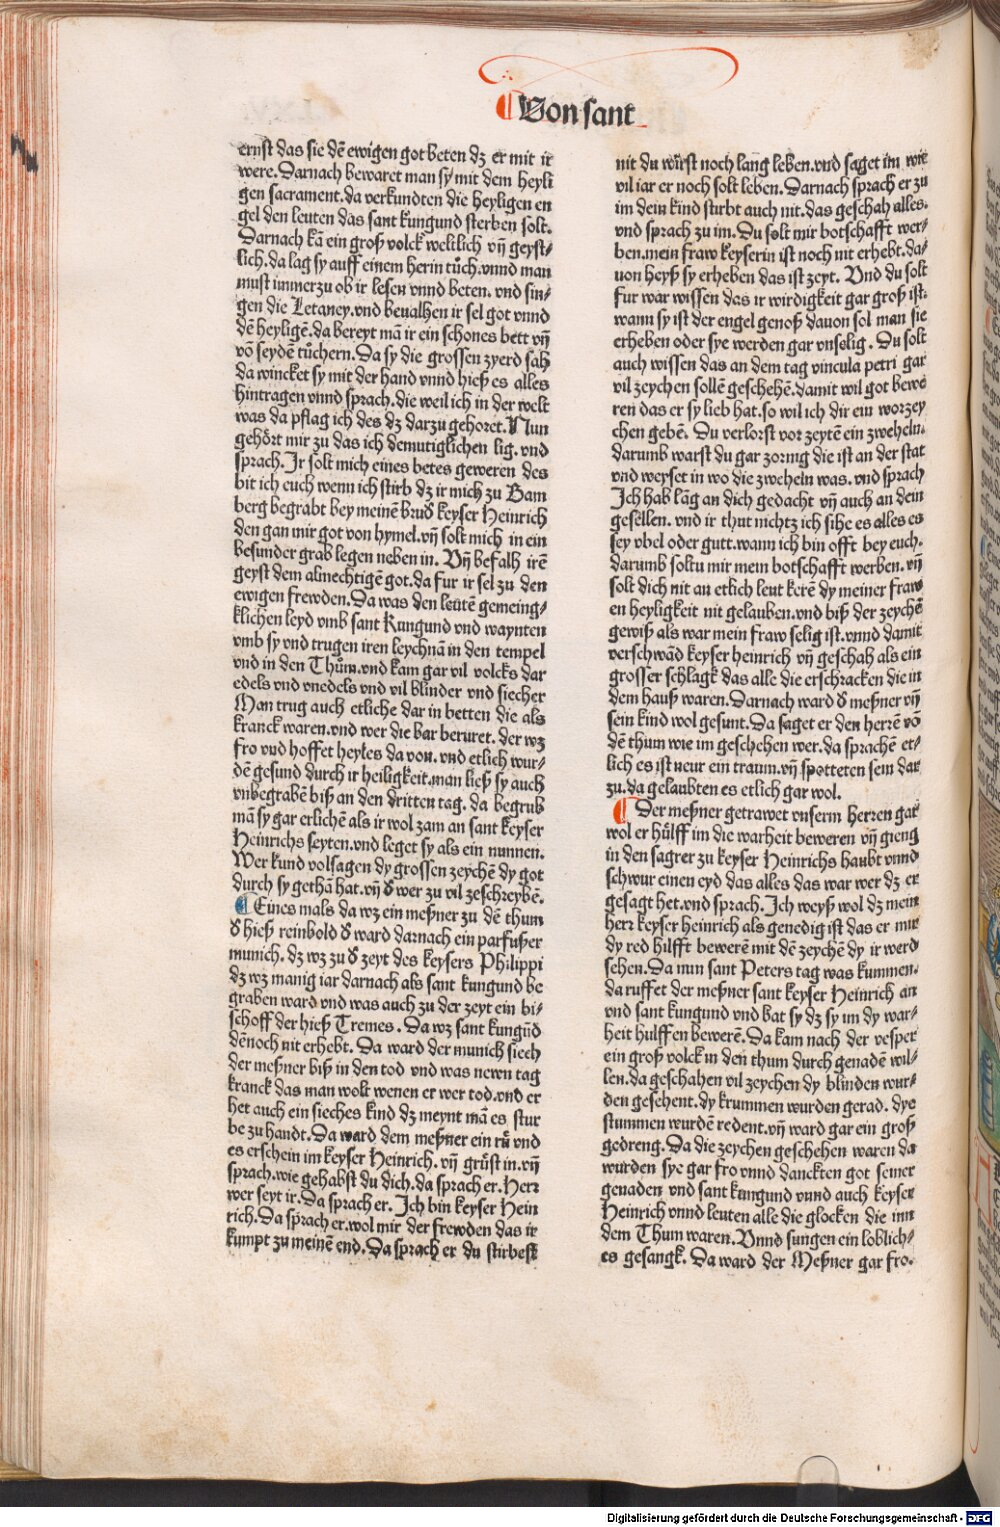 ¶Von sant
ernst das sie dē ewigen got beten dz er mit ir
were. Darnach bewaret man sy mit dem heyli
gen sacrament. da verkundten die heyligen en
gel den leuten das sant kungund sterben solt.
Darnach kā ein groß volck weltlich vn̄ geyst⸗
lich. da lag sy auff einem herin tůch. vnnd man
must immerzu ob ir lesen vnnd beten. vnd sin⸗
gen die Letaney. vnd beualhen ir sel got vnnd
dē heyligē. da bereyt mā ir ein schones bett vn̄
vō seydē tůchern. Da sy die grossen zyerd sah
da wincket sy mit der hand vnnd hieß es alles
hintragen vnnd sprach. die weil ich in der welt
was da pflag ich des dz darzu gehoret. Nun
gehört mir zu das ich demutiglichen lig. vnd
sprach. Ir solt mich eines betes geweren des
bit ich euch wenn ich stirb dz ir mich zu Bam
berg begrabt bey meinē brud̄ keyser Heinrich
den gan mir got von hymel. vn̄ solt mich in ein
besunder grab legen neben in. Vn̄ befalh irē
geyst dem almechtigē got. da fur ir sel zu den
ewigen frewden. Da was den leutē gemeing⸗
klichen leyd vmb sant Kungund vnd waynten
vmb sy vnd trugen iren leychnā in den tempel
vnd in den Thům. vnd kam gar vil volcks dar
edels vnd vnedels vnd vil blinder vnd siecher
Man trug auch etliche dar in betten die als
kranck waren. vnd wer die bar beruret. der wz
fro vnd hoffet heyles da von. vnd etlich wur⸗
dē gesund durch ir heiligkeit. man ließ sy auch
vnbegrabē biß an den dritten tag. da begrub
mā sy gar erlichē als ir wol zam an sant keyser
Heinrichs seyten. vnd leget sy als ein nunnen.
Wer kund volsagen dy grossen zeychē dy got
durch sy gethā hat. vn̄ d̄ wer zu vil zeschreybē.
¶ Eines mals da wz ein meßner zu dē thum
d̄ hieß reinbold d̄ ward darnach ein parfußer
munich. dz wz zu d̄ zeyt des keysers Philippi
dz wz manig iar darnach als sant kungund be
graben ward vnd was auch zu der zeyt ein bi⸗
schoff der hieß Tremes. Da wz sant kungūd
dēnoch nit erhebt. Da ward der munich siech
der meßner biß in den tod vnd was newn tag
kranck das man wolt wenen er wer tod. vnd er
het auch ein sieches kind dz meynt mā es stur
be zu handt. Da ward dem meßner ein rů vnd
es erschein im keyser Heinrich. vn̄ grůst in. vn̄
sprach. wie gehabst du dich. da sprach er. Herr
wer seyt ir. Da sprach er. Ich bin keyser Hein
rich. Da sprach er. wol mir der frewden das ir
kumpt zu meinē end. Da sprach er du stirbest
nit du wirst noch lang leben. vnd saget im wie
vil iar er noch solt leben. Darnach sprach er zu
im dein kind stirbt auch nit. das geschah alles.
vnd sprach zu im. Du solt mir botschafft wer⸗
ben. mein fraw keyserin ist noch nit erhebt. da⸗
uon heyß sy erheben das ist zeyt. Vnd du solt
fur war wissen das ir wirdigkeit gar groß ist.
wann sy ist der engel genoß dauon sol man sie
erheben oder sye werden gar vnselig. Du solt
auch wissen das an dem tag vincula petri gar
vil zeychen sollē geschehē. damit wil got bewe
ren das er sy lieb hat. so wil ich dir ein worzey
chen gebē. Du verlorst vor zeytē ein zweheln.
darumb warst du gar zornig die ist an der stat
vnd weyset in wo die zweheln was. vnd sprach
Ich hab lāg an dich gedacht vn̄ auch an dein
gesellen. vnd ir thut nichtz ich sihe es alles es
sey vbel oder gutt. wann ich bin offt bey euch.
darumb soltu mir mein botschafft werben. vn̄
solt dich nit an etlich leut kerē dy meiner fraw
en heyligkeit nit gelauben. vnd biß der zeychē
gewiß als war mein fraw selig ist. vnnd damit
verschwād keyser heinrich vn̄ geschah als ein
grosser schlagk das alle die erschracken die in
dem hauß waren. Darnach ward d̄ meßner vn̄
sein kind wol gesunt. Da saget er den herrē vō
dē thum wie im geschehen wer. da sprachē et⸗
lich es ist neur ein traum. vn̄ spotteten sein dar
zu. da gelaubten es etlich gar wol.
¶ Der meßner getrawet vnserm herren gar
wol er hůlff im die warheit beweren vn̄ gieng
in den sagrer zu keyser Heinrichs haubt vnnd
schwur einen eyd das alles das war wer dz er
gesagt het. vnd sprach. Ich weyß wol dz mein
herr keyser heinrich als genedig ist das er mir
dy red hilfft bewerē mit dē zeychē dy ir werd
sehen. Da nun sant Peters tag was kummen.
da ruffet der meßner sant keyser Heinrich an
vnd sant kungund vnd bat sy dz sy im dy war⸗
heit hulffen bewerē. Da kam nach der vesper
ein groß volck in den thum durch genadē wil⸗
len. da geschahen vil zeychen dy blinden wur⸗
den gesehent. dy krummen wurden gerad. dye
stummen wurdē redent. vn̄ ward gar ein groß
gedreng. Da die zeychen geschehen waren da
wurden sye gar fro vnnd danckten got seiner
genaden vnd sant kungund vnnd auch keyser
Heinrich vnnd leuten alle die glocken die inn
dem Thum waren. Vnnd sungen ein loblich⸗
es gesangk. Da ward der Meßner gar fro.
Digitalisierung gefördert durch die Deutsche Forschungsgemeinschaft - DFG